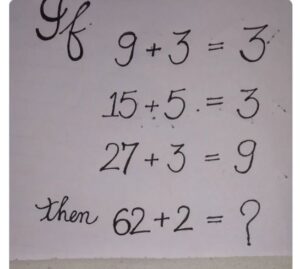 If 9 + 3 = 3
15 + 5 = 3
27 + 3 = 9
then 62 + 2 = ?